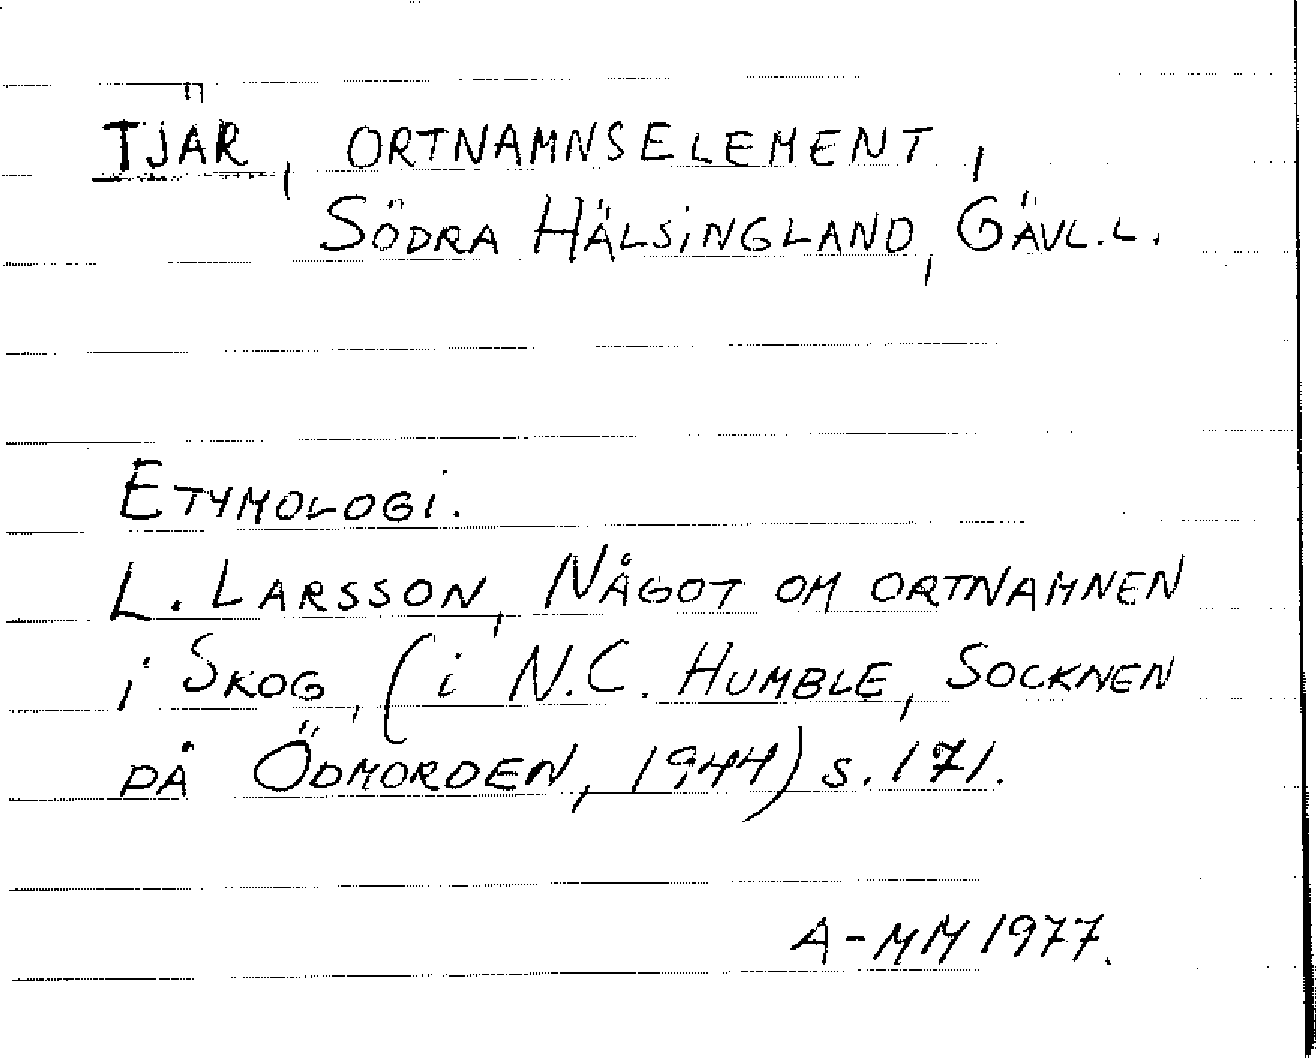 TJÄR, ORTNAMNSELEMENT,
SÖDRA HÄLSiNGLAND, GÄVL.L.
ETYMOLOGi.
L. LARSSON, NÅGOT OM ORTNAMNEN
i SKOG, (i N.C. HUMBLE, SOCKNEN
PÅ ÖDMORDEN, 1944) s. 171.
A-MM 1977.